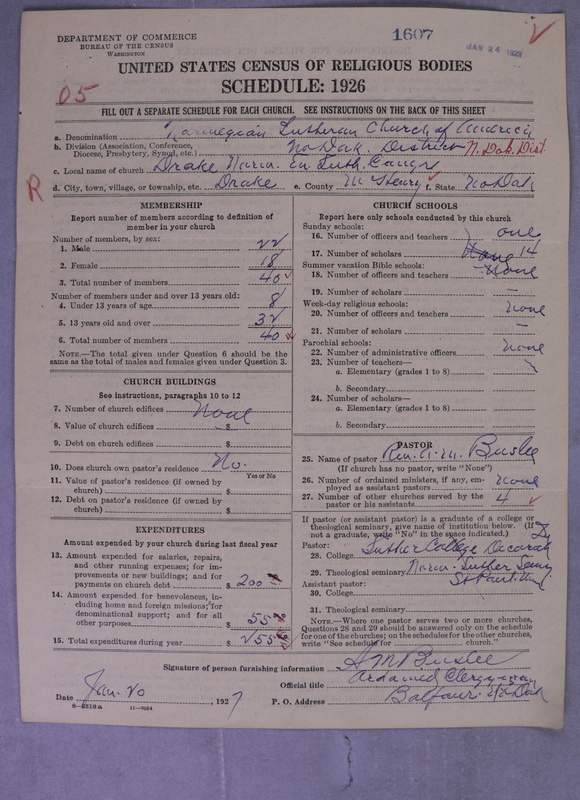 DEPARTMENT OF COMMERCE
BUREAU OF THE CENSUS
WASHINGTON
1607
JAN 24 1928
UNITED STATES CENSUS OF RELIGIOUS BODIES
SCHEDULE: 1926
05
FILL OUT A SEPARATE SCHEDULE FOR EACH CHURCH. SEE INSTRUCTIONS ON THE BACK OF THIS SHEET
a. Denomination Norwegian Lutheran Church of America
b. Division (Association, Conference, Diocese, Presbytery, Synod, etc.) No Dak. District N. Dak. Dist.
c. Local name of church Drake Norw. Ev. Luth. Congr
R
d. City, town, village, or township, etc. Drake e. County McHenry f. State No Dak
MEMBERSHIP
Report number of members according to definition of
member in your church
Number of members, by sex:
1. Male 22
2. Female 18
3. Total number of members 40
Number of members under and over 13 years old:
4. Under 13 years of age 8
5. 13 years old and over 32
6. Total number of members 40
NOTE.—The total given under Question 6 should be
same as the total of males and females given under Question 3.
CHURCH BUILDINGS
See instructions, paragraphs 10 to 12
7. Number of church edifices None
8. Value of church edifices $
9. Debt on church edifices $
10. Does church own pastor's residence No.
Yes or No
11. Value of pastor's residence (if owned by
church) $
12. Debt on pastor's residence (if owned by
church) $
EXPENDITURES
Amount expended by church during last fiscal year
13. Amount expended for salaries, repairs,
and other running expenses; for im-
provements or new buildings; and for
payments on church debt $ 200
14. Amount expended for benevolences, in-
cluding home and foreign missions; for
denominational support; and for all
other purposes $ 55
15. Total expenditures during year $ 255
CHURCH SCHOOLS
Report here only schools conducted by this church
Sunday schools:
16. Number of officers and teachers one
17. Number of scholars 14
Summer vacation Bible schools:
18. Number of officers and teachers None
19. Number of scholars –
Week-day religious schools:
20. Number of officers and teachers none
21. Number of scholars –
Parochial schools:
22. Number of administrative officers none
23. Number of teachers—
a. Elementary (grades 1 to 8)
b. Secondary
24. Number of scholars—
a. Elementary (grades 1 to 8)
b. Secondary
PASTOR
25. Name of pastor Rev. A. M. Buslee
(If church has no pastor, write "None")
26. Number of ordained ministers, if any, em-
ployed as assistant pastors none
27. Number of other churches served by the
pastor or his assistants 4
If pastor (or assistant pastor) is a graduate of a college or
theological seminary, give name of institution below. (If
not a graduate, write "No" in the space indicated.)
Pastor:
28. College Luther College Decorah
29. Theological seminary Norw. Luther Semy
Assistant pastor: St Paul
30. College
31. Theological seminary
NOTE.—Where one pastor serves two or more churches,
Questions 28 and 29 should be answered only on the schedule
for one of the churches; on the schedules for the other churches,
write "See schedule for church."
Signature of person furnishing information A M Buslee
Official title ordained Clergyman
Date Jan. 20, 1927 P. O. Address Balfour No Dak
8—5518a 11—9054